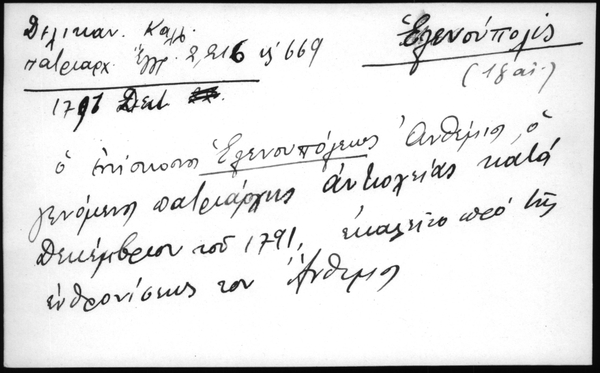 Δελικαν. Καλλ.
πατριαρχ. Ἐγγρ. 2,216 ς 669
Ἑλενούπολις
(18 αἰ.)
1791 Δεκ.
ὁ ἐπίσκοπος Ἑλενουπόλεως Ἄνθεμιος, ὁ
γενόμενος πατριάρχης Ἀντιοχείας κατά
Δεκέμβριον τοῦ 1791, ἐκαλεῖτο πρό τῆς
ἐνθρονίσεως του Ἄνθεμιος